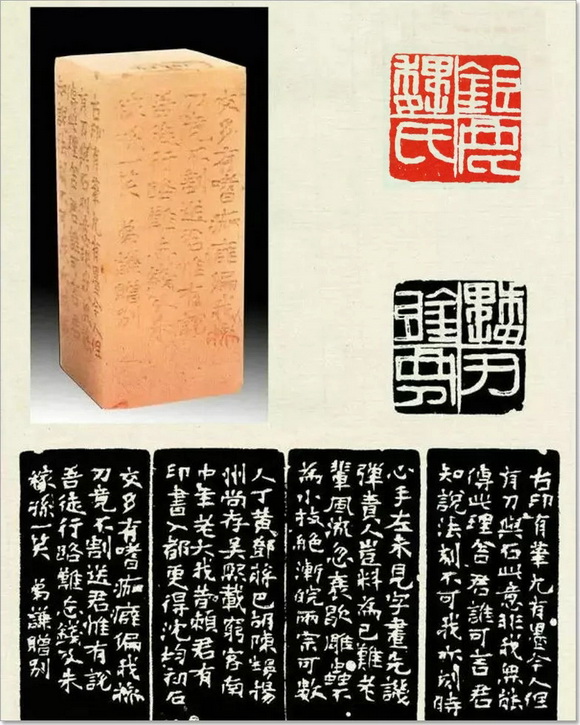 鉅鹿
魏氏
古印有筆尤有墨今人但
有刀與石此意非我無能
傳此理答君誰可言君
知說法刻不可我亦刻時
心手左未見字畫先譏
彈責人豈料為己難老
輩風流忽衰歇雕蟲
為小技絕浙皖兩宗可數
人丁黃鄧蔣巴胡陳揚
州尚存吳熙載窮客南
中年老大我昔賴君有
印書入都更得沈均初石
交多有嗜痂癖偏我操
刀竟不割送君惟有說
吾徒行路難忘錢及朱
稼孫一笑 弟謙贈別